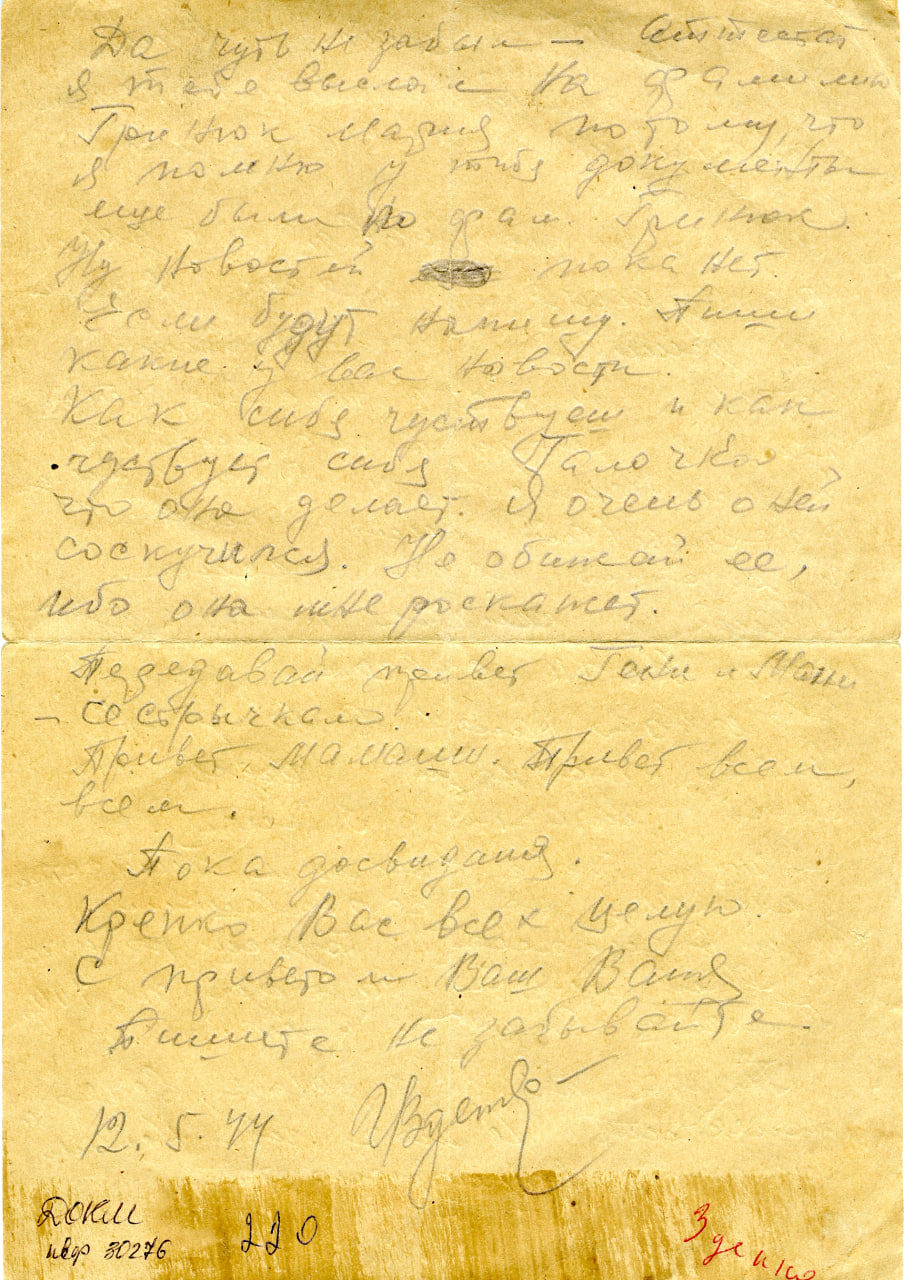 Да чуть не забыл — Аттестат
я тебе выслал на фамилию
Гринюк Мария потому, что
я помню у тебя документы
еще были по фам. Гринюк.
Ну новостей пока нет.
Если будут напишу. Пиши
какие у вас новости.
Как себя чуствуеш и как
чуствует себя Галочка
что она делает. Я очень о ней
соскучился. Не обижай ее,
ибо она мне роскажет.
Передавай привет Гени и Мани
— сестрычкам
Привет Мамаши. Привет всем,
всем.
Пока досвидания.
Крепко Вас всех целую.
С приветом Ваш Ваня
Пишите не забывайте.
12. 5. 44
ДОКМ
нвф 30276
220